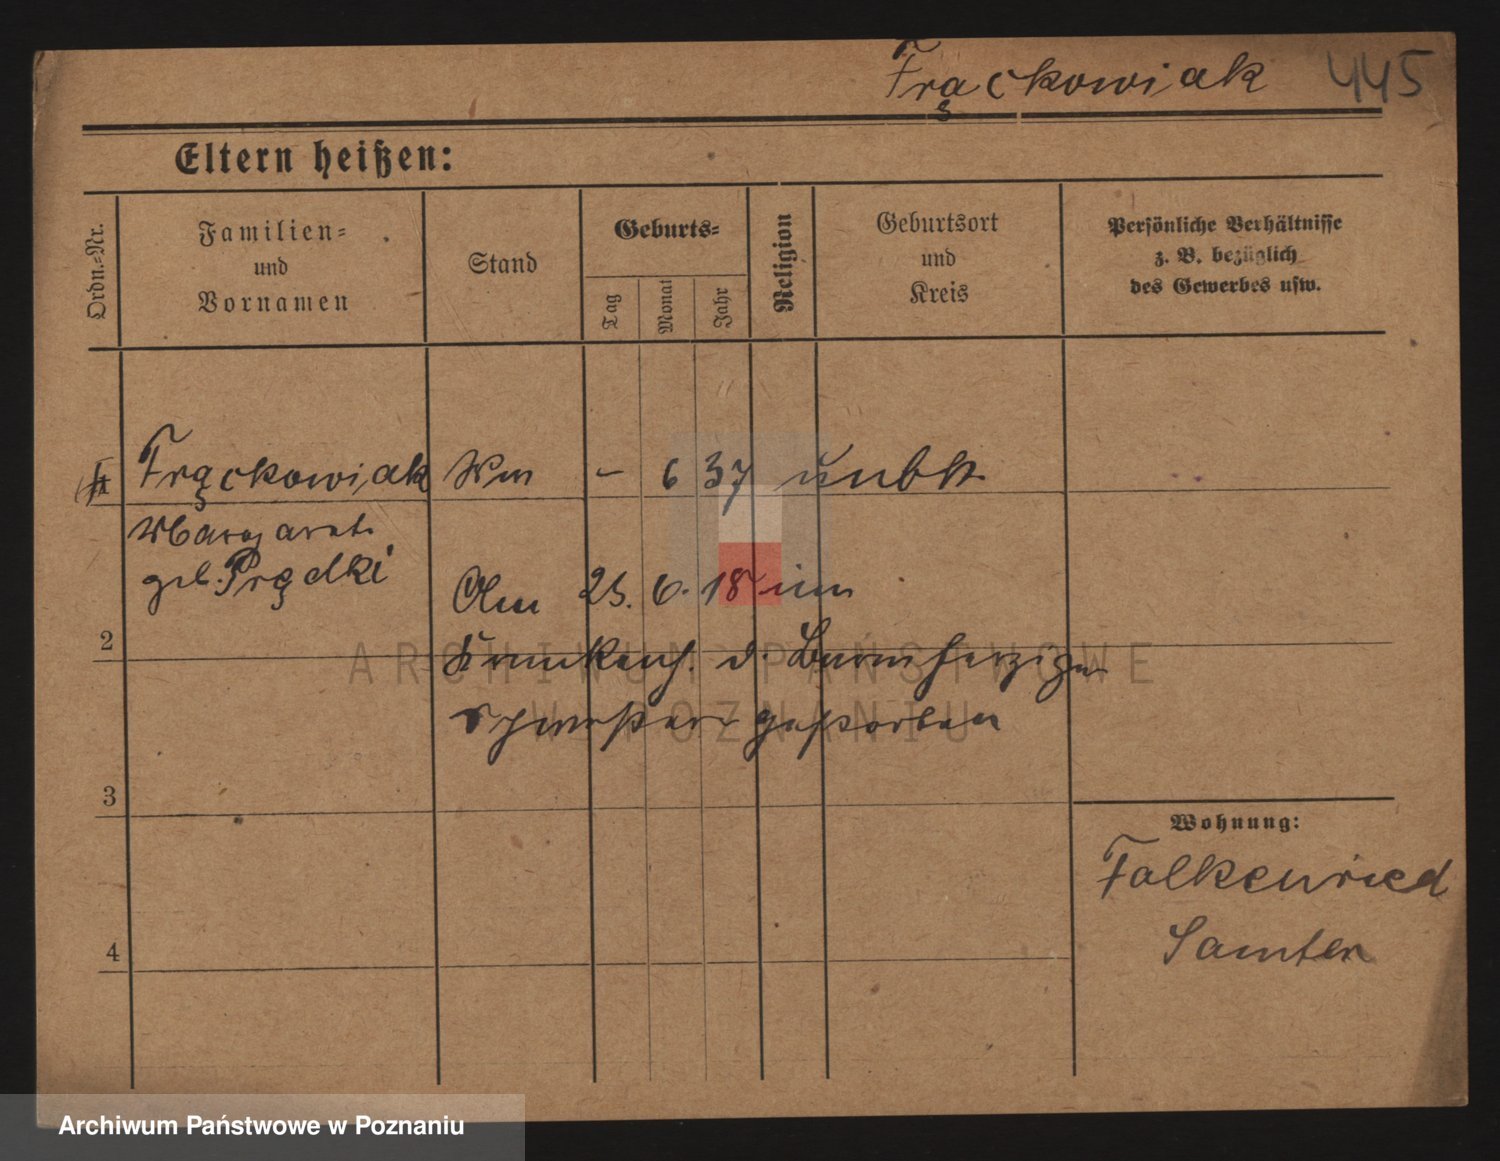 Frąckowiak 445
Eltern heißen:
Ordn.=Nr.
Familien=
und
Vornamen
Stand
Geburts=
Tag
Monat
Jahr
Religion
Geburtsort
und
Kreis
Persönliche Verhältnisse
z. B. bezüglich
des Gewerbes usw.
Frąckowiak Wm - 6 37 unbk
Margaret
geb. Prądki
Am 25. 6. 18 im
2
Krankenh. d. Barmherzigen
Schwestern gestorben
ARCHIWUM PAŃSTWOWE
W POZNANIU
3
Wohnung:
Falkenried
Samter
4
Archiwum Państwowe w Poznaniu